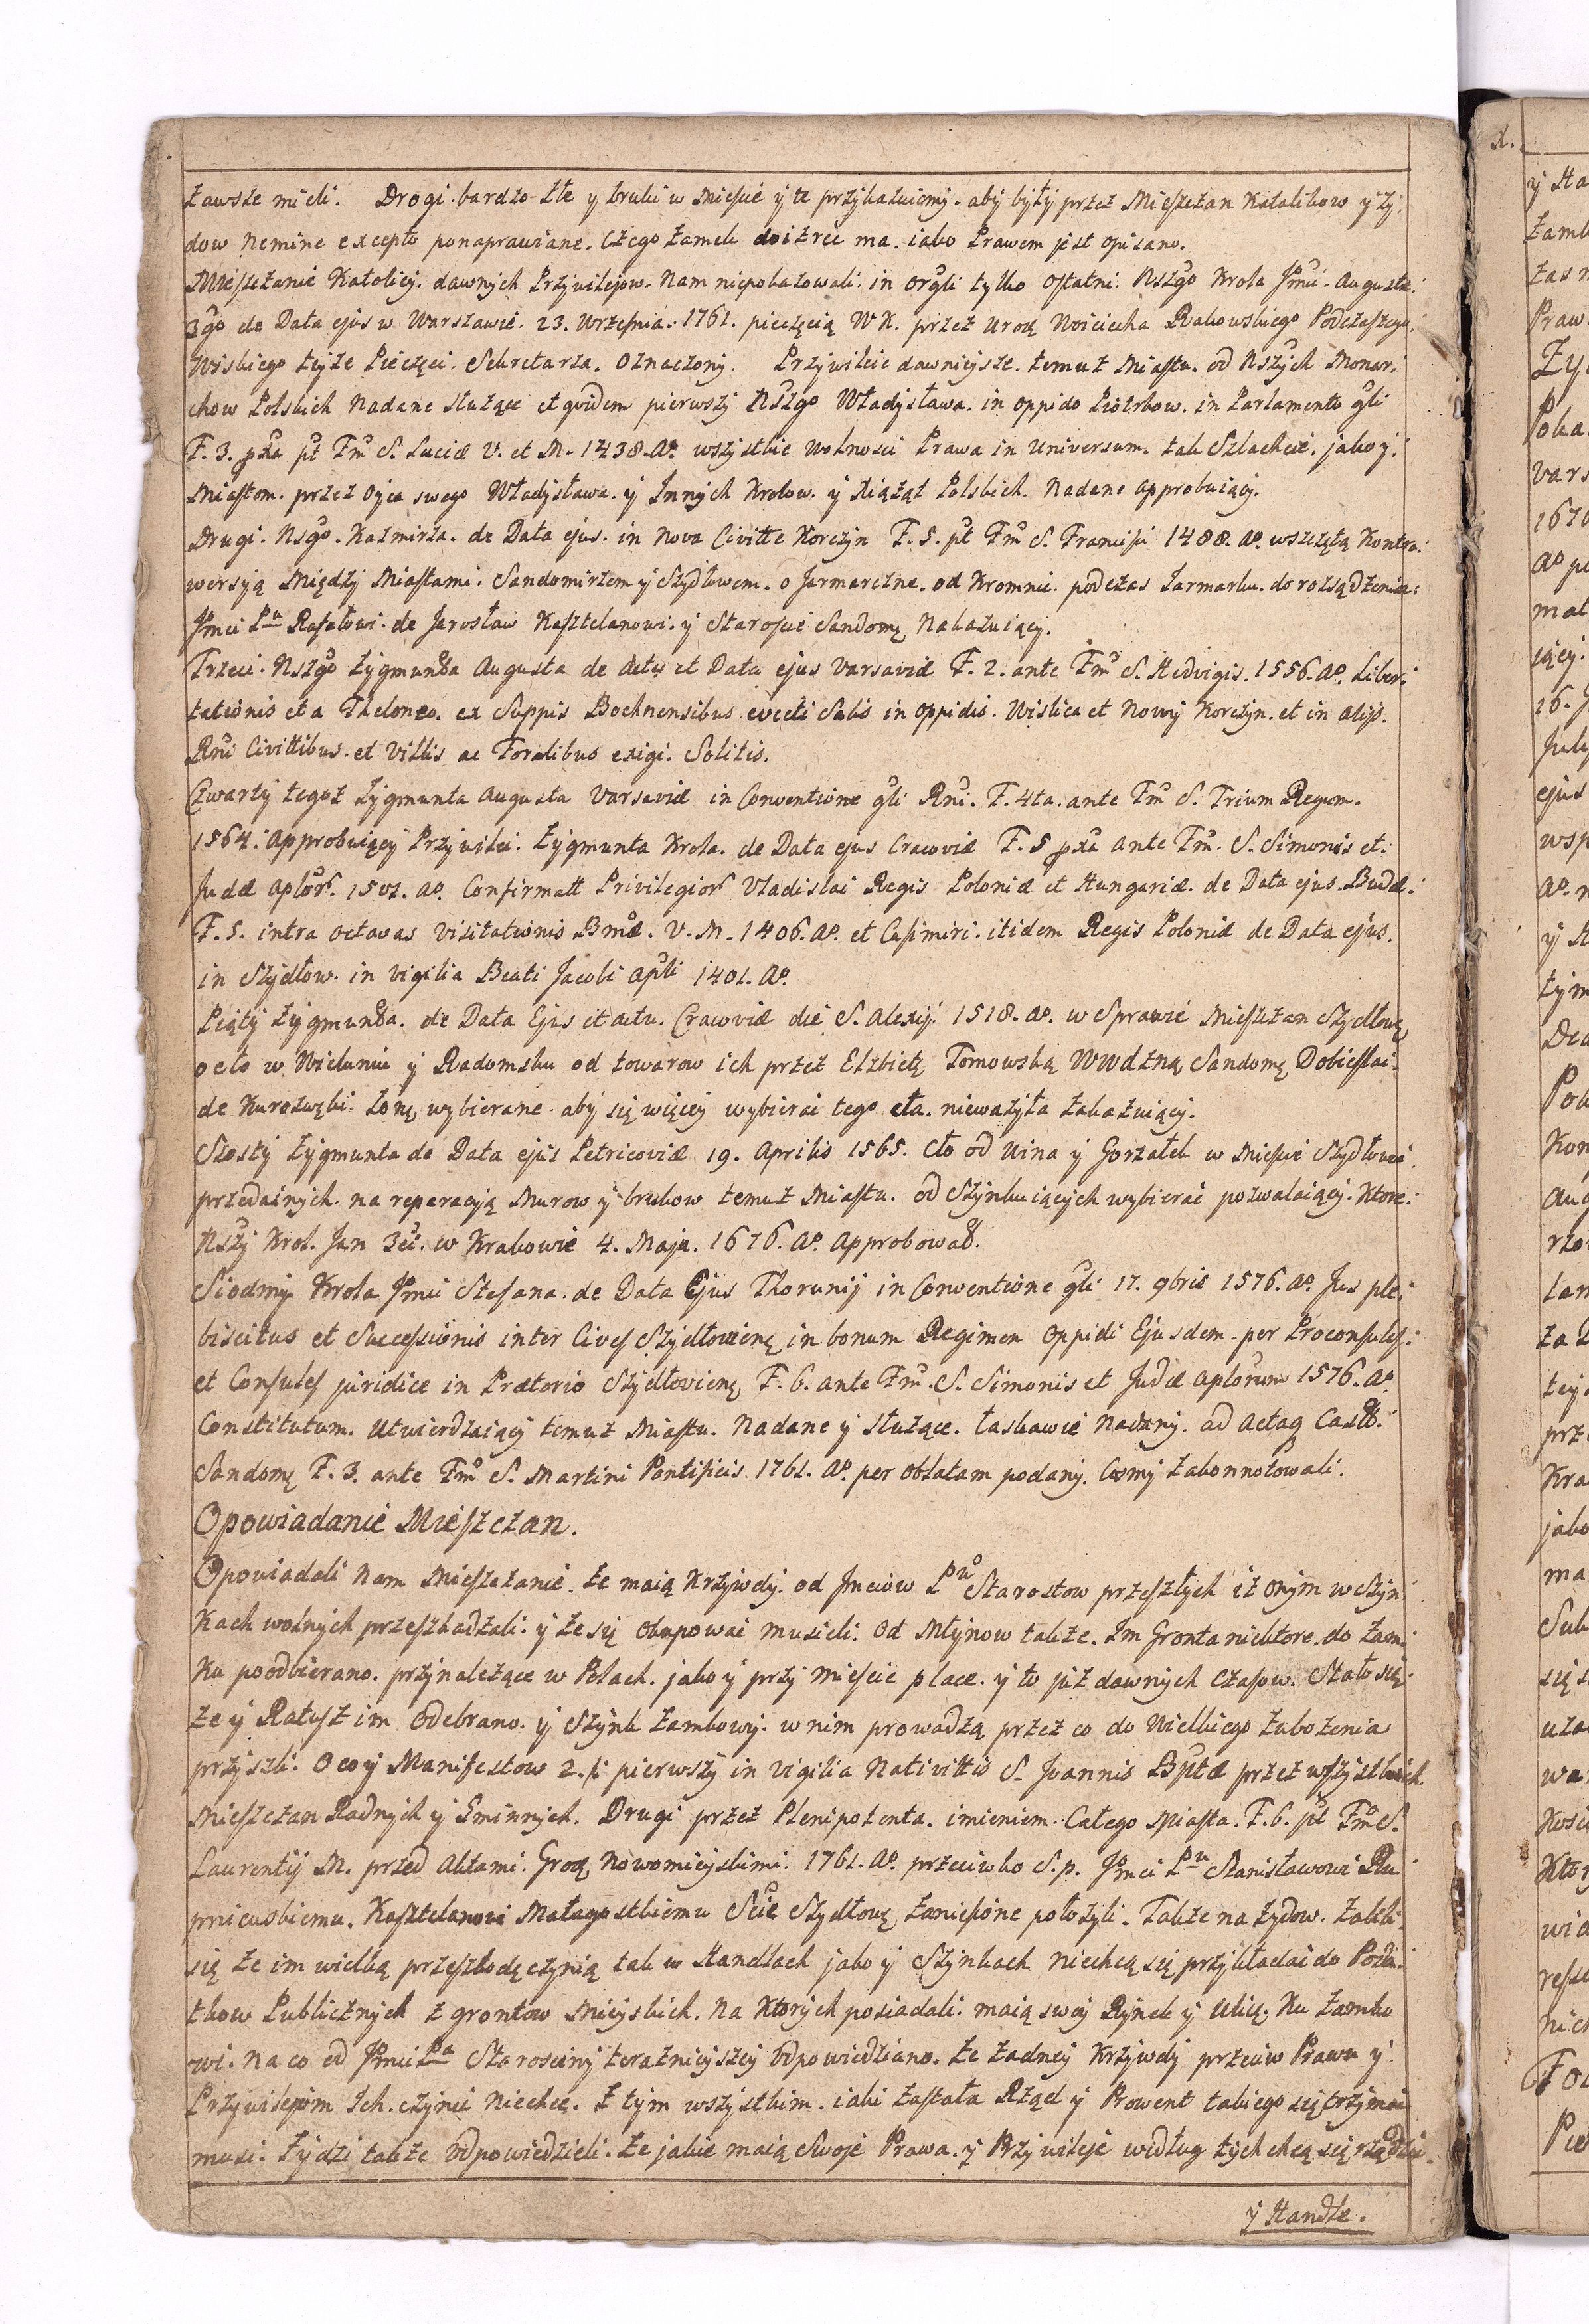 zawsze mieli. Drogi bardzo złe y bruki w Mieście y te przykazuiemy. aby były przez Mieszczan Katolikow y Ży:
dow Nemine excepto ponaprawiane. Czego Zamek doizrec ma. iako Prawem jest opisano.
Mieszczanie Katolicy. dawnych Przywilejow. Nam niepokazowali. in orgli tylko ostatni. Nszgo Krola Jmci. Augusta.
3go de Data ejus w Warszawie. 23. Wrzesnia. 1761. pieczęcią W K. przez Urodz Woiciecha Rakowskiego Podczaszego.
Wiskiego teyże Pieczęci. Sekretarza. Oznaczony. Przywileie dawnieysze. temuż Miastu. od Nszych Monar:
chow Polskich Nadane służące et qvidem pierwszy Nszgo Władysława. in oppido Piotrkow. in Parlamento gli
F. 3. pxa pt Fm S. Luciæ V. et M. 1438. Ao. wszystkie Wolnosci Prawa in Universum. tak Szlachcie. jako y.
Miastom. przez Oyca swego Władysława. y Innych Krolow. y Xiążąt Polskich. Nadane approbuiący.
Drugi. Nsgo. Kazmirza. de Data ejus. in Nova Civitte Korczyn F. 5. pt Fm S. Francisci 1488. Ao. wszczętą Kontro:
wersyą Między Miastami. Sandomirzem y Szydłowem. o Jarmarczne. od Kromnic. podczas Jarmarku. do rozsądzenia:
Jmci Pu Rafałowi. de Jarosław Kasztelanowi. y Staroscie Sandomę Nakazuiący.
Trzeci. Nszgo Zygmunta Augusta de actu et Data ejus Varsaviæ F. 2. ante Fm S. Hedvigis. 1556. Ao. Liber:
tationis et a Theloneo. ex Suppis Bochnensibus evecti Salis in oppidis. Wislica et Nowy Korczyn. et in alijs.
Rni Civittibus. et Villis ac Foralibus exigi. Solitis.
Czwarty tegoż Zygmunta Augusta Varsaviæ in Conventione gli Rni. F. 4ta. ante Fm S. Trium Regum.
1564. Approbuiący Przywilei. Zygmunta Krola. de Data ejus Cracoviæ F. 5 pxa ante Fm. S. Simonis et.
Judæ aplor. 1501. Ao. Confirmatt Privilegior Vladislai Regis Poloniæ et Hungariæ. de Data ejus. Budæ.
F. 5. intra octavas visitationis Bmæ. V. M. 1406. Ao. et Casimiri. itidem Regis Poloniæ de Data ejus.
in Szydłow. in vigilia Beati Jacobi apli 1401. Ao.
Piąty Zygmunta. de Data Ejus et actu. Cracoviæ die S. Alexij. 1518. Ao. w Sprawie Mieszczan Szydłowę
o cło w Wieluniu y Radomsku od towarow ich przez Elzbietę Tornowską WWdzną Sandomę Dobieslai.
de Kurozwęki. Zonę wybierane. aby się więcey wybierać tego cła. nieważyła zakazuiący.
Szosty Zygmunta de Data ejus Petricoviæ 19. Aprilis 1565. Cło od Wina y Gorzałek w Mieście Szydłowie.
przedaśnych. na reparacyą Murow y brukow temuż Miastu. od Szynkuiących wybierać pozwalaiący. Ktore:
Nszy Krol. Jan 3ci. w Krakowie 4. Maja. 1676. Ao. approbował.
Siodmy Krola Jmci Stefana. de Data Ejus Thorunij in Conventione gli 17. 9bris 1576. Ao. Jus ple:
biscitus et Successionis inter Cives Szydłowienę in bonum Regimen oppidi Ejusdem. per Proconsules.
et Consules juridice in Prætorio Szydłovienę F. 6. ante Fm. S. Simonis et Judæ aplorum 1576. Ao.
Constitutum. Utwierdzaiący temuż Miastu. Nadane y służące. łaskawie Nadany. ad Acta Castr.
Sandomę F. 3. ante Fm S. Martini Pontificis 1761. Ao. per oblatam podany. Cosmy zakonnotowali.
Opowiadanie Mieszczan.
Opowiadali Nam Mieszczanie. że maią Krzywdy. od Jmciow Pu Starostow przeszłych iż onym w Szyn:
Kach wolnych przeszkadzali. y że się Okupowac musieli. od Młynow także. Im Gronta niektore. do Zam:
Ku poodbierano. przynależące w Polach. jako y przy Mieście place. y to już dawnych Czasow. Stało się:
że y Ratusz im Odebrano. y Szynk Zamkowy. w nim prowadzą przez co do Wielkiego Zubożenia
przyszli. O co y Manifestow 2. pierwszy in vigilia Nativittis S. Joannis Bptæ przez wszystkich
Mieszczan Radnych y Gminnych. Drugi przez Plenipotenta. imieniem. Całego Miasta. F. 6. pt Fm S.
Laurentij M. przed Aktami. Grodz Nowomieyskimi. 1761. Ao. przeciwko S. p. Jmci Pu Stanisławowi Ru:
pniewskiemu. Kasztelanowi Małagostkiemu Scie Szydłowę zaniesione położyli. Także na Zydow. zalili.
się że im wielką przeszkodę czynią tak w Handlach jako y Szynkach niechcą się przykładac do Poda:
tkow Publicznych z grontow Mieyskich. na Ktorych posiadali. maią swoy Rynek y Ulicę. Ku Zamko
wi. na co od Jmci Pa Starosciny teraznieyszey odpowiedziano. że żadney Krzywdy przeciw Prawu y.
Przywilejom Ich. czynić niechce. Z tym wszystkim. iaki zastała Rząd y Prowent takiego się trzymac
musi. Żydzi także odpowiedzieli. że jakie maią Swoje Prawa. y Przywileje według tych chcą się rządzic.
y Handle.